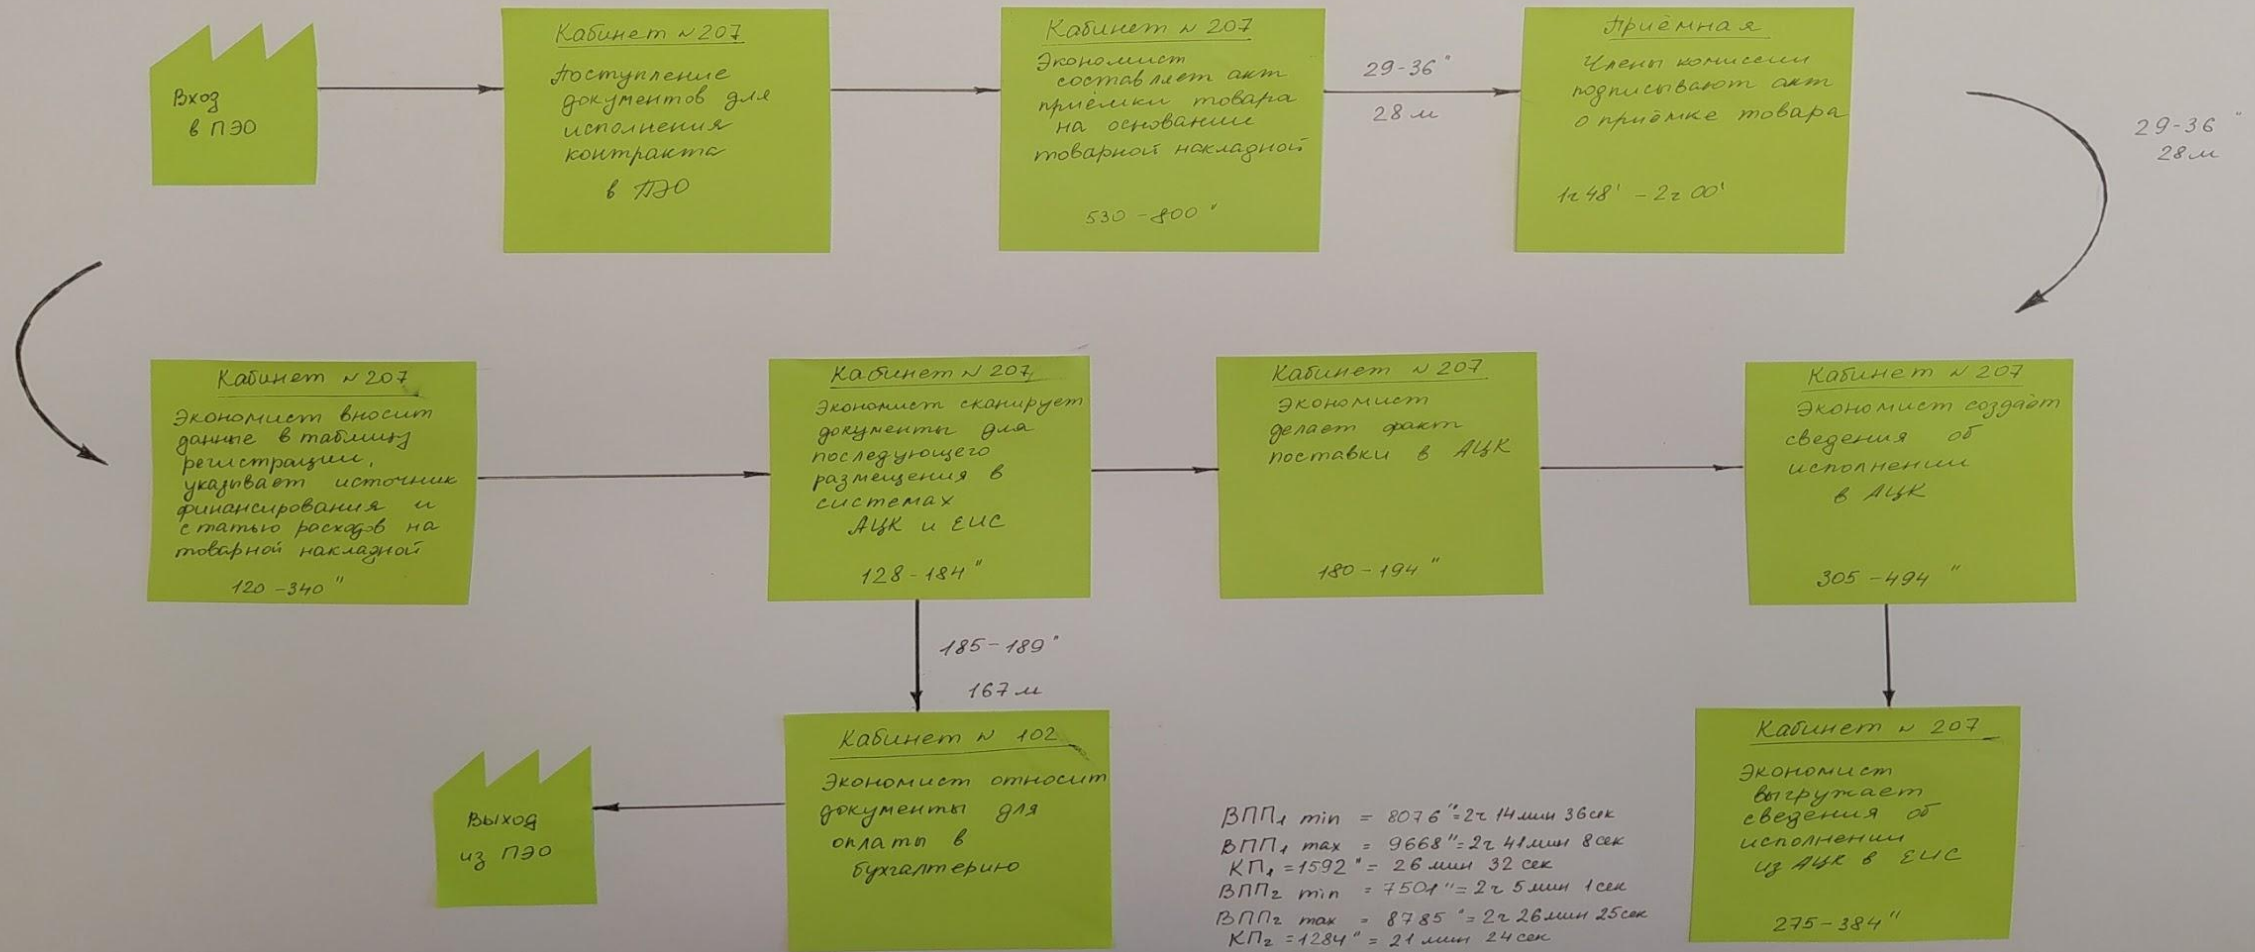 Вход
в ПЭО
Кабинет №207
Поступление
документов для
исполнения
контракта
в ПЭО
Кабинет №207
Экономист
составляет акт
приёмки товара
на основании
товарной накладной
530-800"
29-36"
28 м
Приёмная
Члены комиссии
подписывают акт
о приёмке товара
1ч 48' - 2ч 00'
29-36"
28 м
Кабинет №207
Экономист вносит
данные в таблицу
регистрации,
указывает источник
финансирования и
статью расходов на
товарной накладной
120-340"
Кабинет №207
Экономист сканирует
документы для
последующего
размещения в
системах
АЦК и ЕИС
128-184"
Кабинет №207
Экономист
делает факт
поставки в АЦК
180-194"
Кабинет №207
Экономист создаёт
сведения об
исполнении
в АЦК
305-494"
185-189"
167 м
Выход
из ПЭО
Кабинет № 102
Экономист относит
документы для
оплаты в
бухгалтерию
ВПП₁ min = 8076" = 2ч 14мин 36сек
ВПП₁ max = 9668" = 2ч 41мин 8сек
КП₁ = 1592" = 26 мин 32 сек
ВПП₂ min = 7501" = 2ч 5мин 1сек
ВПП₂ max = 8785" = 2ч 26мин 25сек
КП₂ = 1284" = 21 мин 24сек
Кабинет №207
Экономист
выгружает
сведения об
исполнении
из АЦК в ЕИС
275-384"